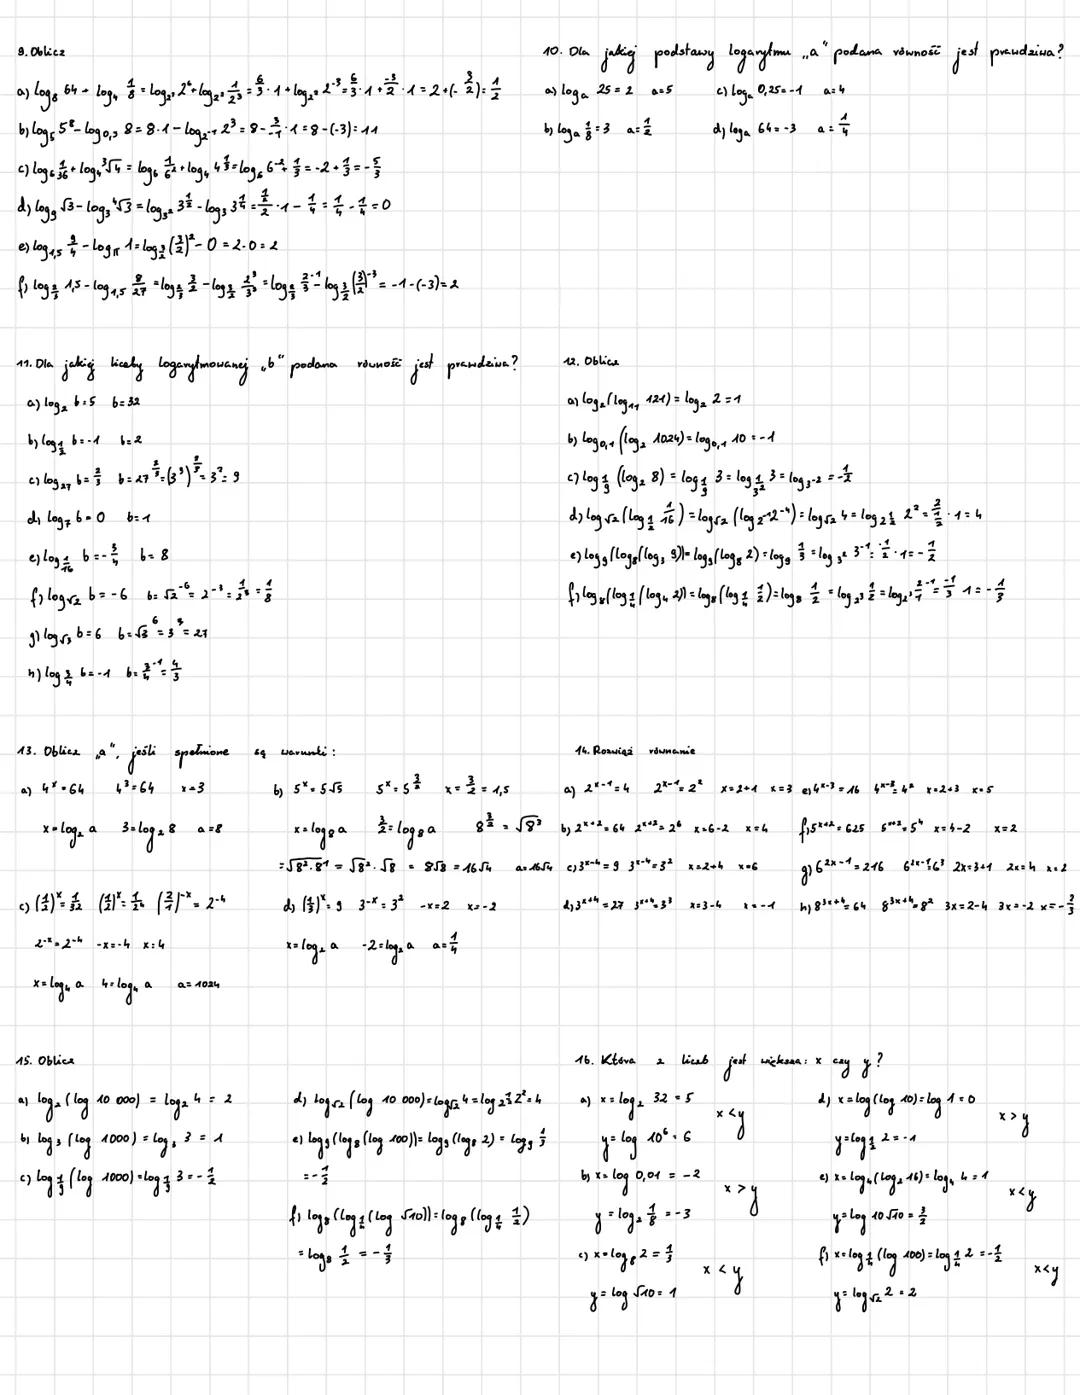 9. Oblicz
a) log₈ 64 + log₄ 1/8 = log_2³ 2⁶ + log_2² 1/2³ = 6/3 · 1 + log_2² 2⁻³ = 6/3 · 1 + -3/2 · 1 = 2 + (-3/2) = 1/2
b) log₅ 5⁸ - log_0,5 8 = 8·1 - log_2⁻¹ 2³ = 8 - 3/-1 · 1 = 8 - (-3) = 11
c) log₆ 1/36 + log₄ ³√4 = log₆ 1/6² + log₄ 4^1/3 = log₆ 6⁻² + 1/3 = -2 + 1/3 = -5/3
d) log₉ √3 - log₃ ⁴√3 = log_3² 3^1/2 - log₃ 3^1/4 = 1/2/2 · 1 - 1/4 = 1/4 - 1/4 = 0
e) log_1,5 9/4 - log_π 1 = log_3/2 (3/2)² - 0 = 2 - 0 = 2
f) log_2/3 1,5 - log_1,5 8/27 = log_2/3 3/2 - log_3/2 2³/3³ = log_2/3 2/3⁻¹ - log_3/2 (3/2)⁻³ = -1 - (-3) = 2
10. Dla jakiej podstawy logarytmu „a" podana równość jest prawdziwa?
a) log_a 25 = 2 a = 5 c) log_a 0,25 = -1 a = 4
b) log_a 1/8 = 3 a = 1/2 d) log_a 64 = -3 a = 1/4
11. Dla jakiej liczby logarytmowanej „b" podana równość jest prawdziwa?
a) log₂ b = 5 b = 32
b) log_1/2 b = -1 b = 2
c) log₂₇ b = 2/3 b = 27^2/3 = (3³)^2/3 = 3² = 9
d) log₇ b = 0 b = 1
e) log_1/16 b = -3/4 b = 8
f) log_√2 b = -6 b = √2⁻⁶ = 2⁻³ = 1/2³ = 1/8
g) log_√3 b = 6 b = √3⁶ = 3³ = 27
h) log_3/4 b = -1 b = 3/4⁻¹ = 4/3
12. Oblicz
a) log₂ (log₁₁ 121) = log₂ 2 = 1
b) log_0,1 (log₂ 1024) = log_0,1 10 = -1
c) log_1/9 (log₂ 8) = log_1/9 3 = log_1/3² 3 = log_3⁻² = -1/2
d) log_√2 (log_1/2 1/16) = log_√2 (log_2⁻¹ 2⁻⁴) = log_√2 4 = log_2^1/2 2² = 2/1/2 · 1 = 4
e) log₉ (log₈ (log₃ 9)) = log₉ (log₈ 2) = log₉ 1/3 = log_3² 3⁻¹ = -1/2 · 1 = -1/2
f) log₈ (log_1/4 (log₄ 2)) = log₈ (log_1/4 1/2) = log₈ 1/2 = log_2³ 1/2 = log_2³ 2/1⁻¹ = -1/3 1 = -1/3
13. Oblicz „a", jeśli spełnione są warunki:
a) 4ˣ = 64 4³ = 64 x = 3
x = log₂ a 3 = log₂ 8 a = 8
b) 5ˣ = 5√5 5ˣ = 5^3/2 x = 3/2 = 1,5
x = log₈ a 3/2 = log₈ a 8^3/2 = √8³
= √8²·8¹ = √8² · √8 = 8√8 = 16√4 a = 16√4
c) (1/2)ˣ = 1/32 (1/2)ˣ = 1/2⁴ (2/1)⁻ˣ = 2⁻⁴
2⁻ˣ = 2⁻⁴ -x = -4 x = 4
x = log₄ a 4 = log₄ a a = 1024
d) (1/3)ˣ = 9 3⁻ˣ = 3² -x = 2 x = -2
x = log₂ a -2 = log₂ a a = 1/4
14. Rozwiąż równanie
a) 2ˣ⁻¹ = 4 2ˣ⁻¹ = 2² x = 2+1 x = 3
b) 2ˣ⁺² = 64 2ˣ⁺² = 2⁶ x = 6-2 x = 4
c) 3ˣ⁻⁴ = 9 3ˣ⁻⁴ = 3² x = 2+4 x = 6
d) 3ˣ⁺⁴ = 27 3ˣ⁺⁴ = 3³ x = 3-4 x = -1
e) 4ˣ⁻³ = 16 4ˣ⁻³ = 4² x = 2+3 x = 5
f) 5ˣ⁺² = 625 5ˣ⁺² = 5⁴ x = 4-2 x = 2
g) 6²ˣ⁻¹ = 216 6²ˣ⁻¹ = 6³ 2x = 3+1 2x = 4 x = 2
h) 8³ˣ⁺⁴ = 64 8³ˣ⁺⁴ = 8² 3x = 2-4 3x = -2 x = -2/3
15. Oblicz
a) log₂ (log 10 000) = log₂ 4 = 2
b) log₃ (log 1000) = log₃ 3 = 1
c) log_1/9 (log 1000) = log_1/9 3 = -1/2
d) log_√2 (log 10 000) = log_√2 4 = log_2^1/2 2² = 4
e) log₉ (log₈ (log 100)) = log₉ (log₈ 2) = log₉ 1/3
= -1/2
f) log₈ (log_1/4 (log √10)) = log₈ (log_1/4 1/2)
= log₈ 1/2 = -1/3
16. Która z liczb jest większa: x czy y?
a) x = log₂ 32 = 5
x < y
y = log 10⁶ = 6
b) x = log 0,01 = -2
x > y
y = log₂ 1/8 = -3
c) x = log₈ 2 = 1/3
x < y
y = log √10 = 1
d) x = log (log 10) = log 1 = 0
x > y
y = log_1/2 2 = -1
e) x = log₄ (log₂ 16) = log₄ 4 = 1
x < y
y = log 10√10 = 3/2
f) x = log_1/4 (log 100) = log_1/4 2 = -1/2
x < y
y = log_√2 2 = 2